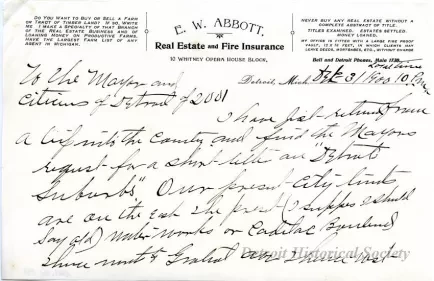 DO YOU WANT TO BUY OR SELL A FARM
OR TRACT OF TIMBER LAND? IF SO, WRITE
ME. I MAKE A SPECIALTY OF THAT BRANCH
OF THE REAL ESTATE BUSINESS AND OF
LOANING MONEY ON PRODUCTIVE FARMS.
HAVE THE LARGEST FARM LIST OF ANY
AGENT IN MICHIGAN.
E. W. ABBOTT,
Real Estate and Fire Insurance
10 WHITNEY OPERA HOUSE BLOCK,
NEVER BUY ANY REAL ESTATE WITHOUT A
COMPLETE ABSTRACT OF TITLE.
TITLES EXAMINED. ESTATES SETTLED.
MONEY LOANED.
MY OFFICE IS FITTED WITH A LARGE FIRE PROOF
VAULT, IN WHICH CLIENTS MAY
HAVE DEEDS, MORTGAGES, ETC., WITHOUT CHARGE
Bell and Detroit Phones, Main
Detroit, Mich. 31 1900 10 PM
To the Mayor and
Citizens of Detroit of 2001
I have just returned from
a trip into the County and find the Mayors
request for a short letter on "Detroit
Suburbs" Our present City limits
are on the East the present (I suppose I should
say old) water works or Cadillac Boulevard
thence north to Gratiot Ave thence west
Detroit Historical Society